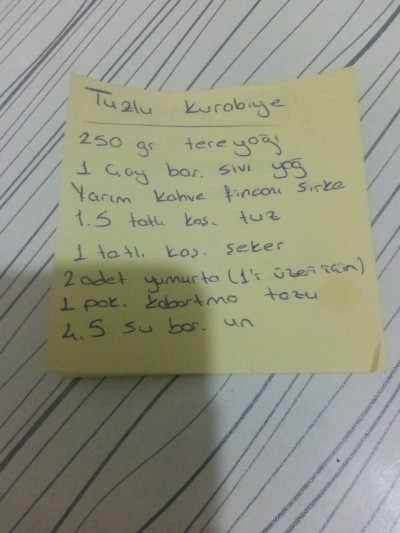 Tuzlu kurabiye
250 gr tereyağı
1 Çay bar. sıvı yağ
Yarım kahve fincanı sirke
1.5 tatlı kaş. tuz
1 tatlı kaş. şeker
2 adet yumurta (1'i üzeri için)
1 pak. kabartma tozu
4.5 su bar. un